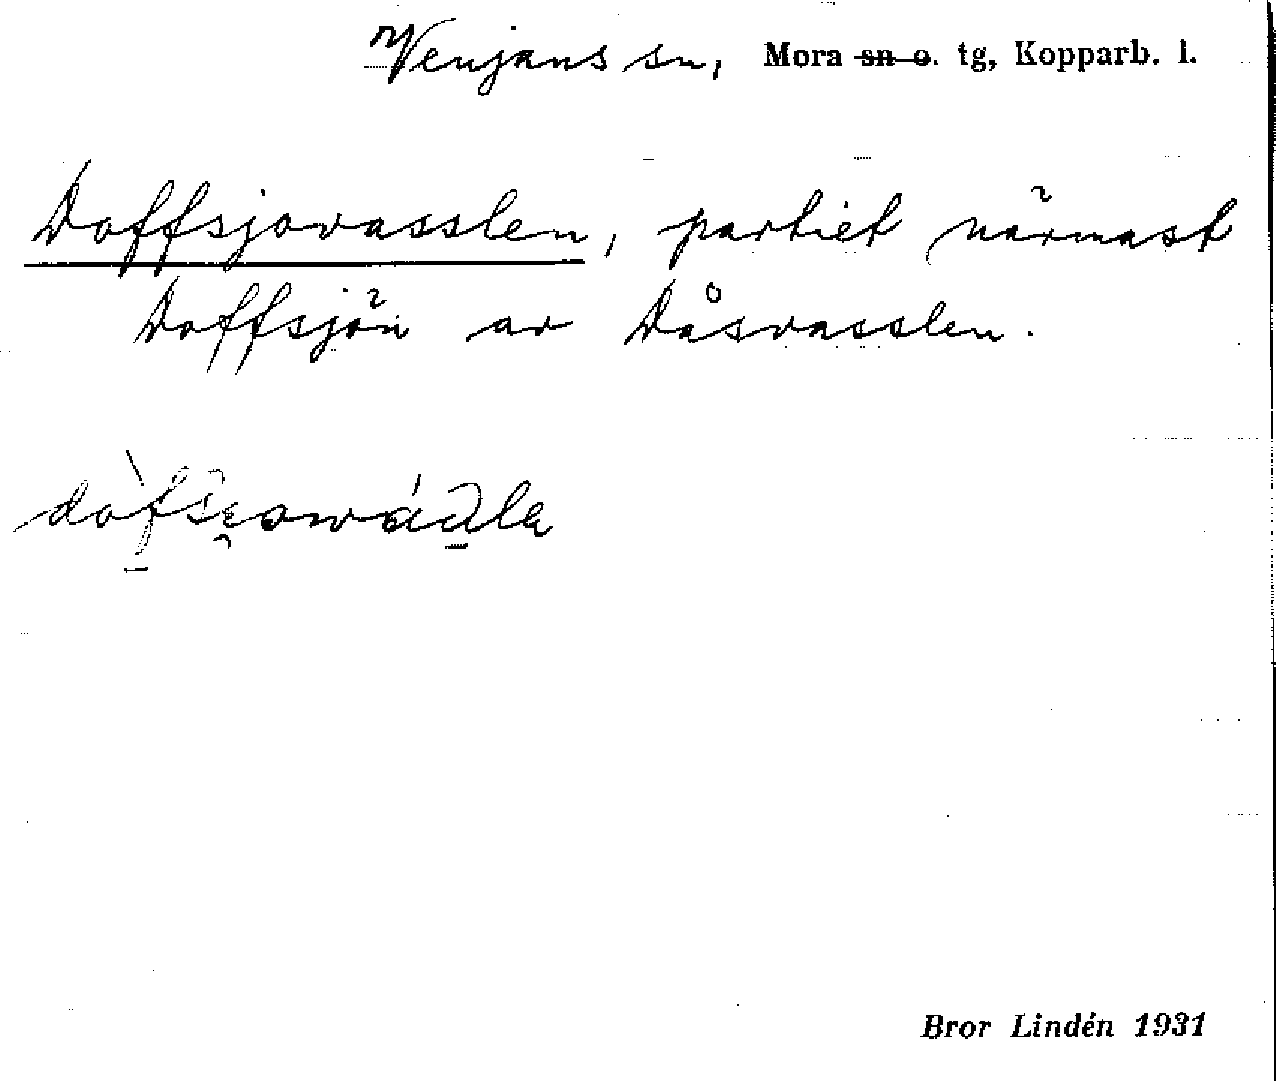 Venjans sn, Mora sn o. tg, Kopparb. l.
Doffsjovasslen, partiet närmast
Doffsjön av Dåsvasslen.
Bror Lindén 1931